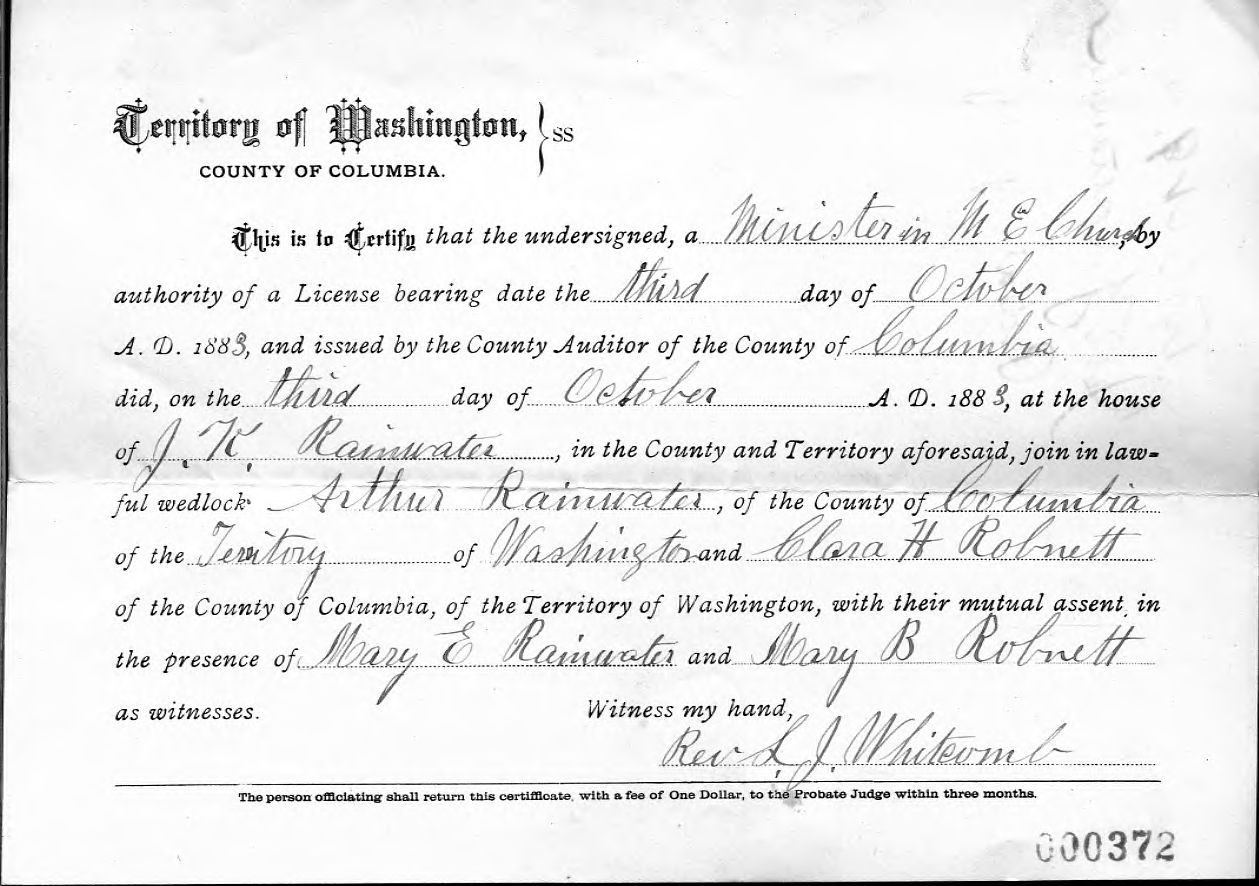 Territory of Washington, } ss
COUNTY OF COLUMBIA.
This is to Certify that the undersigned, a Minister in M E Church, by
authority of a License bearing date the third day of October
A. D. 1883, and issued by the County Auditor of the County of Columbia
did, on the third day of October A. D. 1883, at the house
of J. K. Rainwater, in the County and Territory aforesaid, join in law-
ful wedlock Arthur Rainwater, of the County of Columbia
of the Territory of Washington and Clara H Robnett
of the County of Columbia, of the Territory of Washington, with their mutual assent in
the presence of Mary E Rainwater and Mary B Robnett
as witnesses. Witness my hand,
Rev L. J. Whitcomb
The person officiating shall return this certifficate, with a fee of One Dollar, to the Probate Judge within three months.
000372